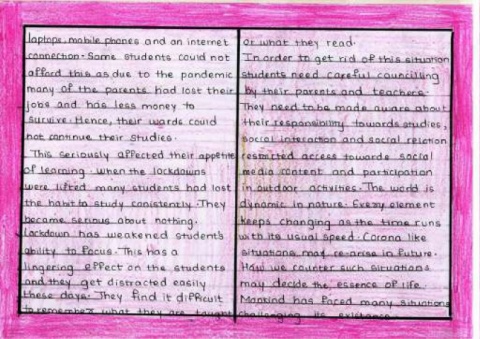 laptops, mobile phones and an internet
connection. Some students could not
afford this as due to the pandemic
many of the parents had lost their
jobs and has less money to
survive. Hence, their wards could
not continue their studies.
This seriously affected their appetite
of learning. when the lockdowns
were lifted many students had lost
the habit to study consistently. They
became serious about nothing.
Lockdown has weakened student's
ability to focus. This has a
lingering effect on the students
and they get distracted easily
these days. They find it difficult
to remember what they are taught
or what they read.
In order to get rid of this situation
students need careful councilling
by their parents and teachers.
They need to be made aware about
their responsibility towards studies,
social interaction and social relation
restricted access towards social
media content and participation
in outdoor activities. The world is
dynamic in nature. Every element
keeps changing as the time runs
with its usual speed. Corona like
situations may re-arise in future.
How we counter such situations
may decide the essence of life.
Mankind has faced many situations
challenging its existence.